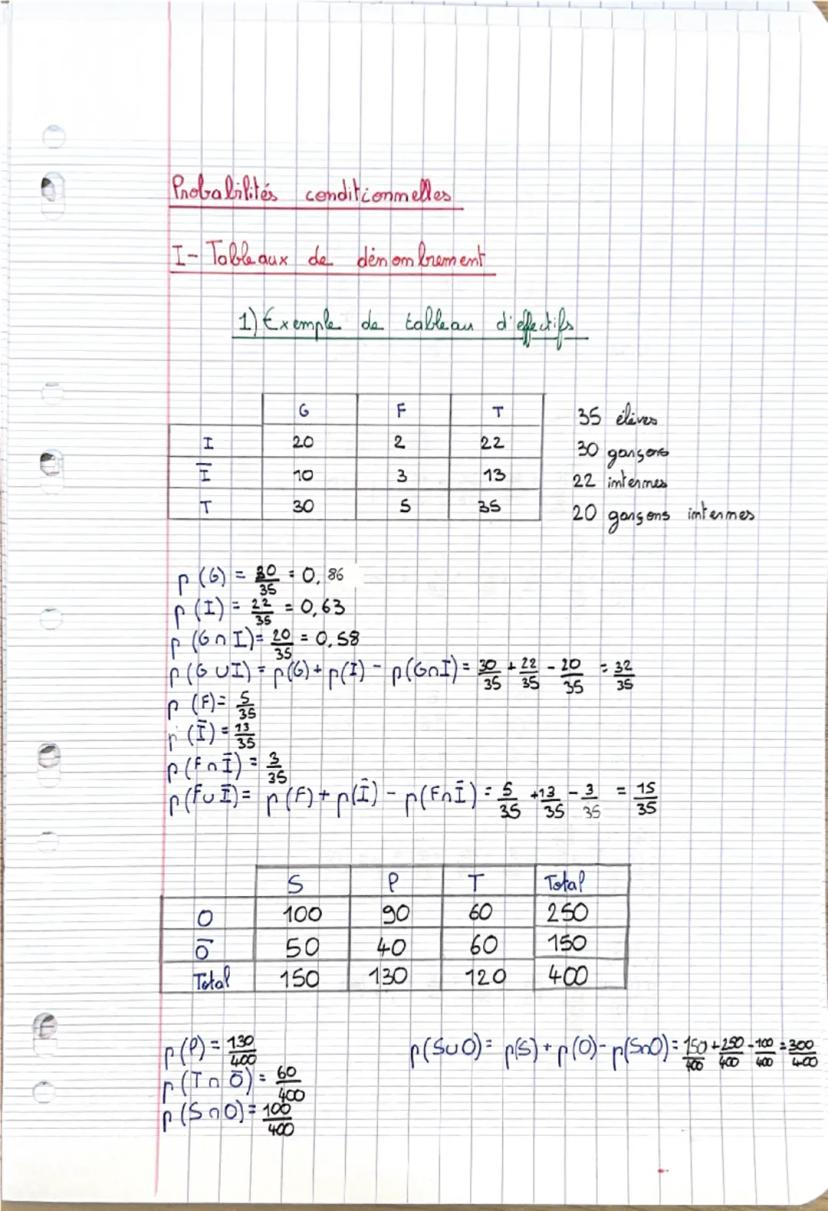 Probabilités conditionnelles
I- Tableaux de dénombrement
1) Exemple de tableau d'effectifs
G F T
I 20 2 22
Ī 10 3 13
T 30 5 35
35 élèves
30 garçons
22 internes
20 garçons internes
p(G) = 30/35 = 0,86
p(I) = 22/35 = 0,63
p(G∩I) = 20/35 = 0,58
p(G∪I) = p(G) + p(I) - p(G∩I) = 30/35 + 22/35 - 20/35 = 32/35
p(F) = 5/35
p(Ī) = 13/35
p(F∩Ī) = 3/35
p(F∪Ī) = p(F) + p(Ī) - p(F∩Ī) = 5/35 + 13/35 - 3/35 = 15/35
S P T Total
O 100 90 60 250
Ō 50 40 60 150
Total 150 130 120 400
p(P) = 130/400
p(T∩Ō) = 60/400
p(S∩O) = 100/400
p(S∪O) = p(S) + p(O) - p(S∩O) = 150/400 + 250/400 - 100/400 = 300/400